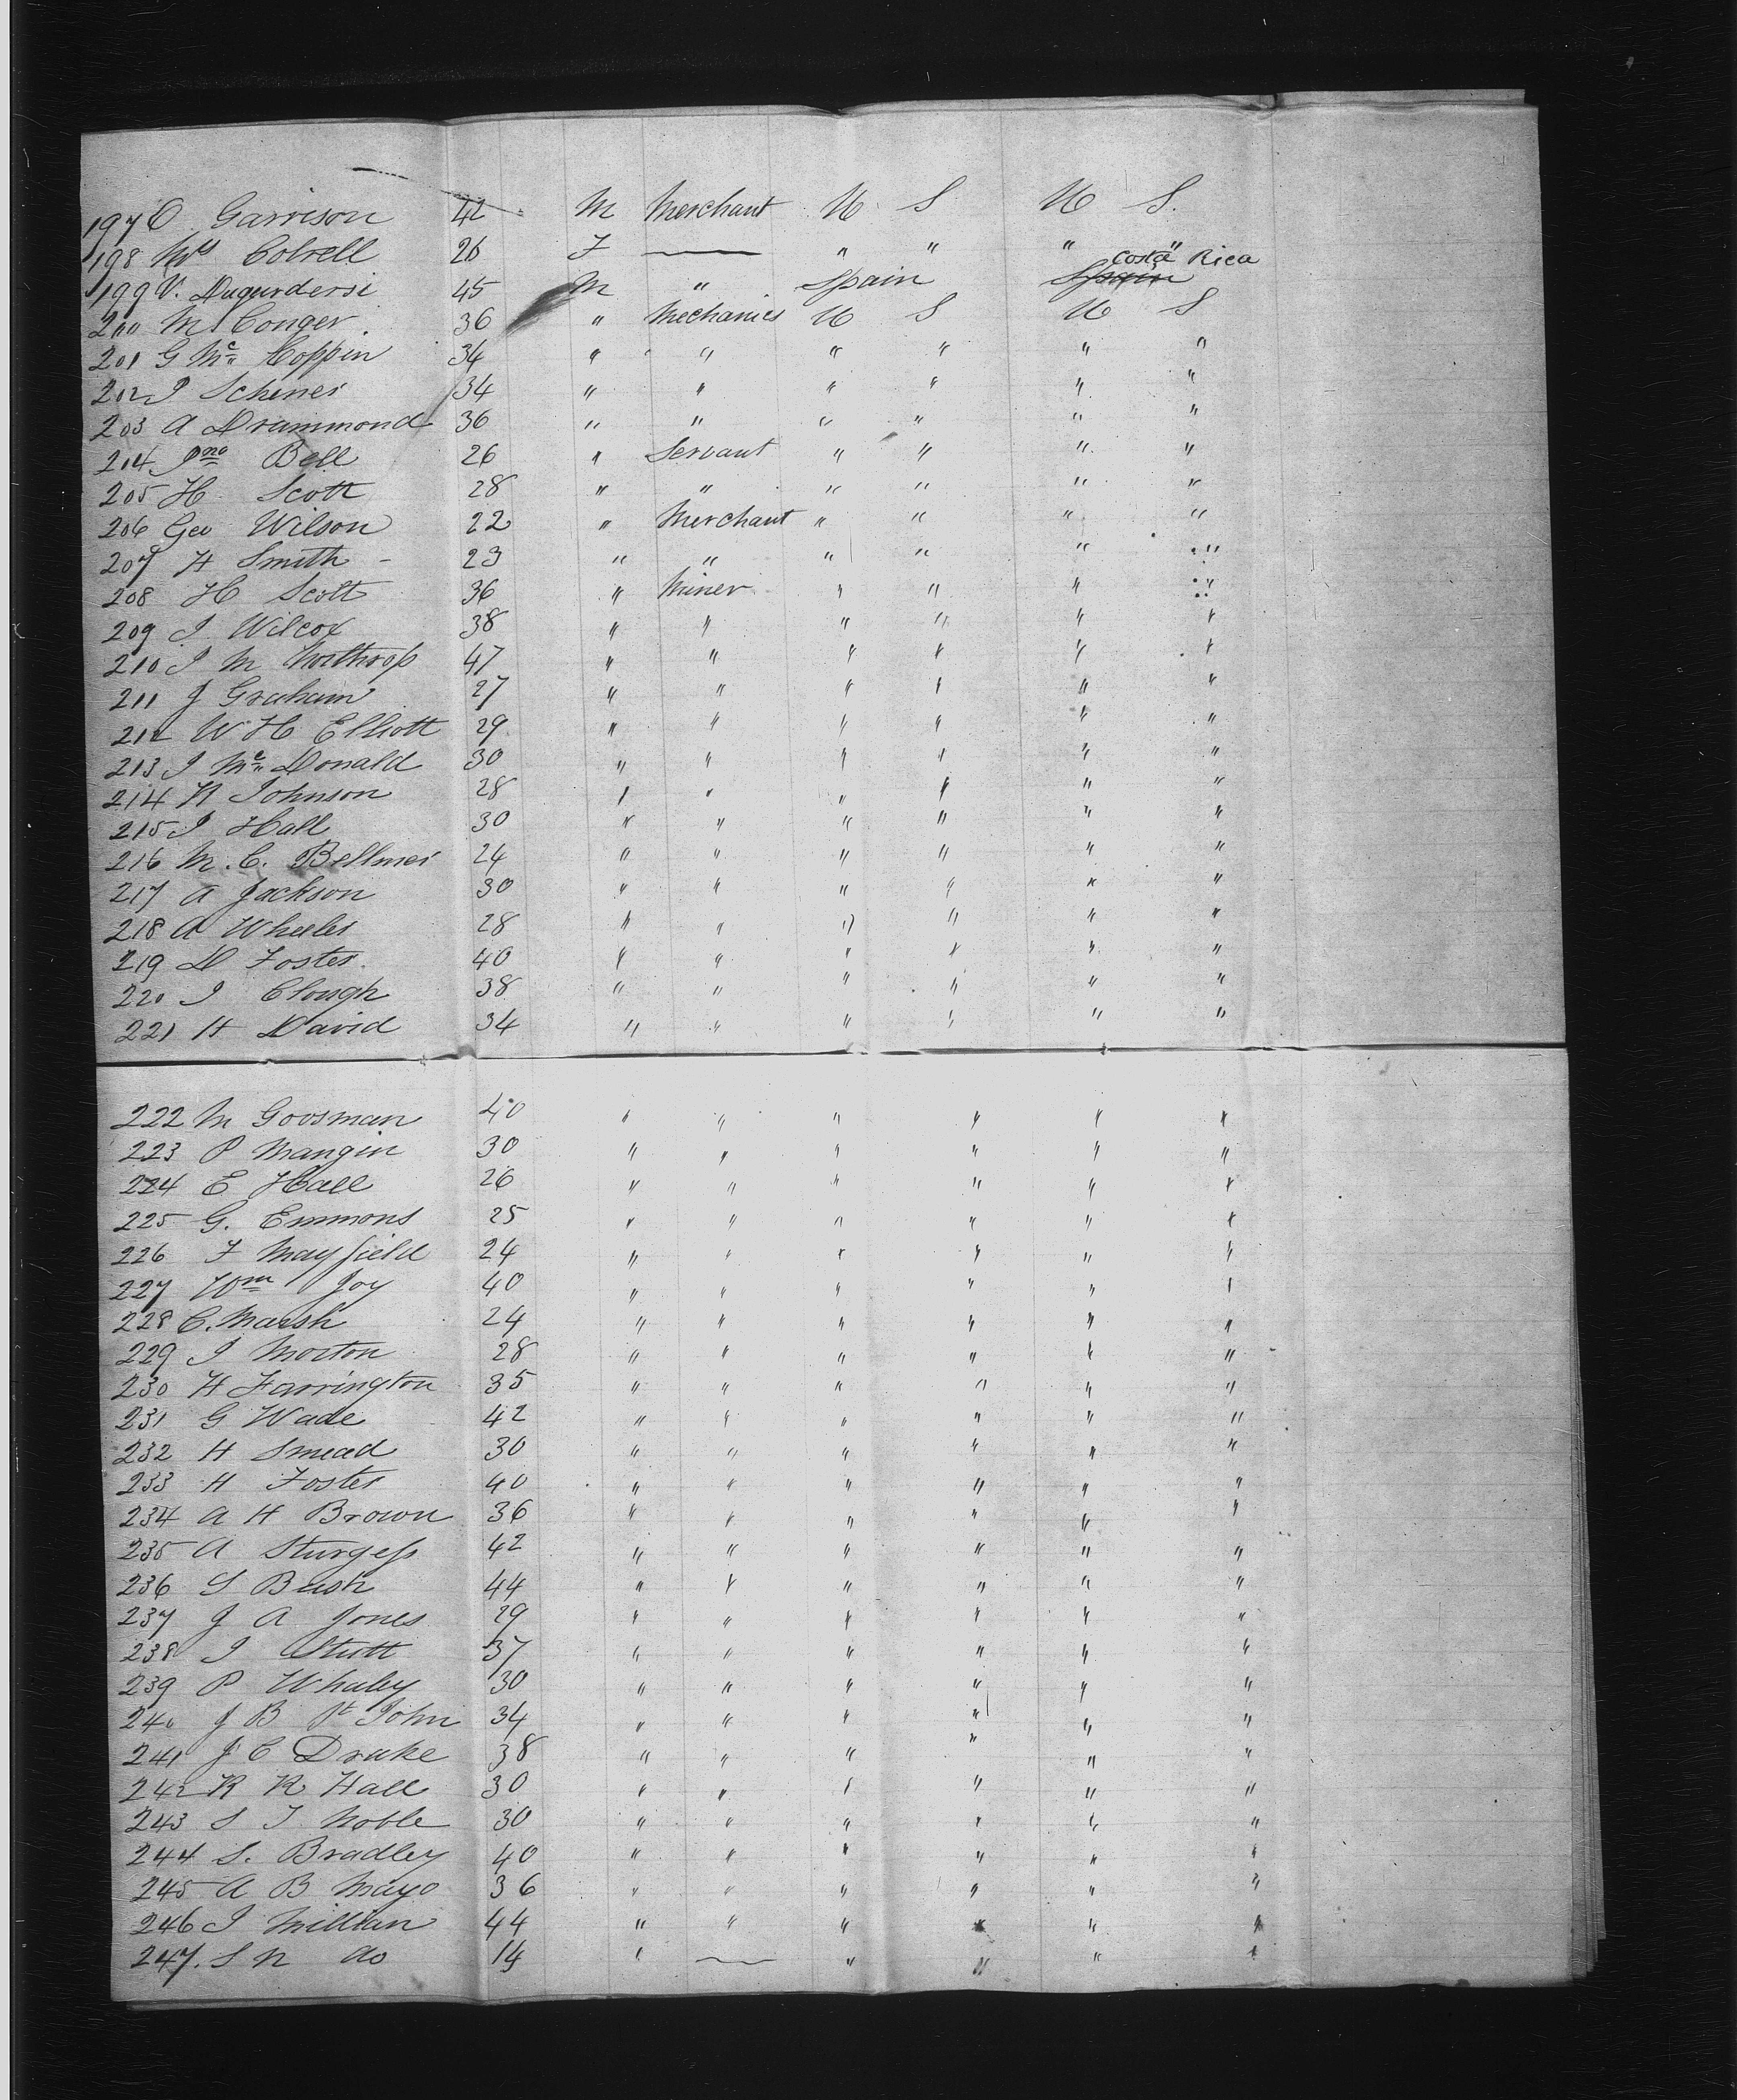 197 O Garrison 42 M Merchant U S U S.
198 Mrs Colrell 26 F — " " " "
199 V. Dugurdersi 45 M " Spain Spain Costa Rica
200 M Conger. 36 " Mechanics U S U S
201 G Mc Coppin 34 " " " " " "
202 J Schener 34 " " " " " "
203 A Drummond 36 " " " " " "
204 Jno Bell 26 " Servant " " " "
205 H. Scott 28 " " " " " "
206 Geo Wilson 22 " Merchant " " " "
207 H Smith - 23 " " " " " "
208 H Scott 36 " Miner " " " "
209 J Wilcox 38 " " " " " "
210 J M Northrop 47 " " " " " "
211 J Graham 27 " " " " " "
212 W H Elliott 29 " " " " " "
213 J Mc Donald 30 " " " " " "
214 N Johnson 28 " " " " " "
215 J Hall 30 " " " " " "
216 M. C. Bellmer 24 " " " " " "
217 A Jackson 30 " " " " " "
218 A Wheeler 28 " " " " " "
219 D Foster. 40 " " " " " "
220 J Clough 38 " " " " " "
221 H David 34 " " " " " "
222 M Goosman 40 " " " " " "
223 P Mangin 30 " " " " " "
224 E Hall 26 " " " " " "
225 G. Emmons 25 " " " " " "
226 F Mayfield 24 " " " " " "
227 Wm Joy 40 " " " " " "
228 C. Marsh 24 " " " " " "
229 J Morton 28 " " " " " "
230 H Farrington 35 " " " " " "
231 G Wade 42 " " " " " "
232 H Smead 30 " " " " " "
233 H Foster 40 " " " " " "
234 A H Brown 36 " " " " " "
235 A Sturgess 42 " " " " " "
236 S Bush 44 " " " " " "
237 J A Jones 29 " " " " " "
238 J Stutt 37 " " " " " "
239 P Whaley 30 " " " " " "
240 J B St John 34 " " " " " "
241 J C Drake 38 " " " " " "
242 R R Hall 30 " " " " " "
243 S T Noble 30 " " " " " "
244 S. Bradley 40 " " " " " "
245 A B Mayo 36 " " " " " "
246 J Millian 44 " " " " " "
247. S N do 14 " — " " " "